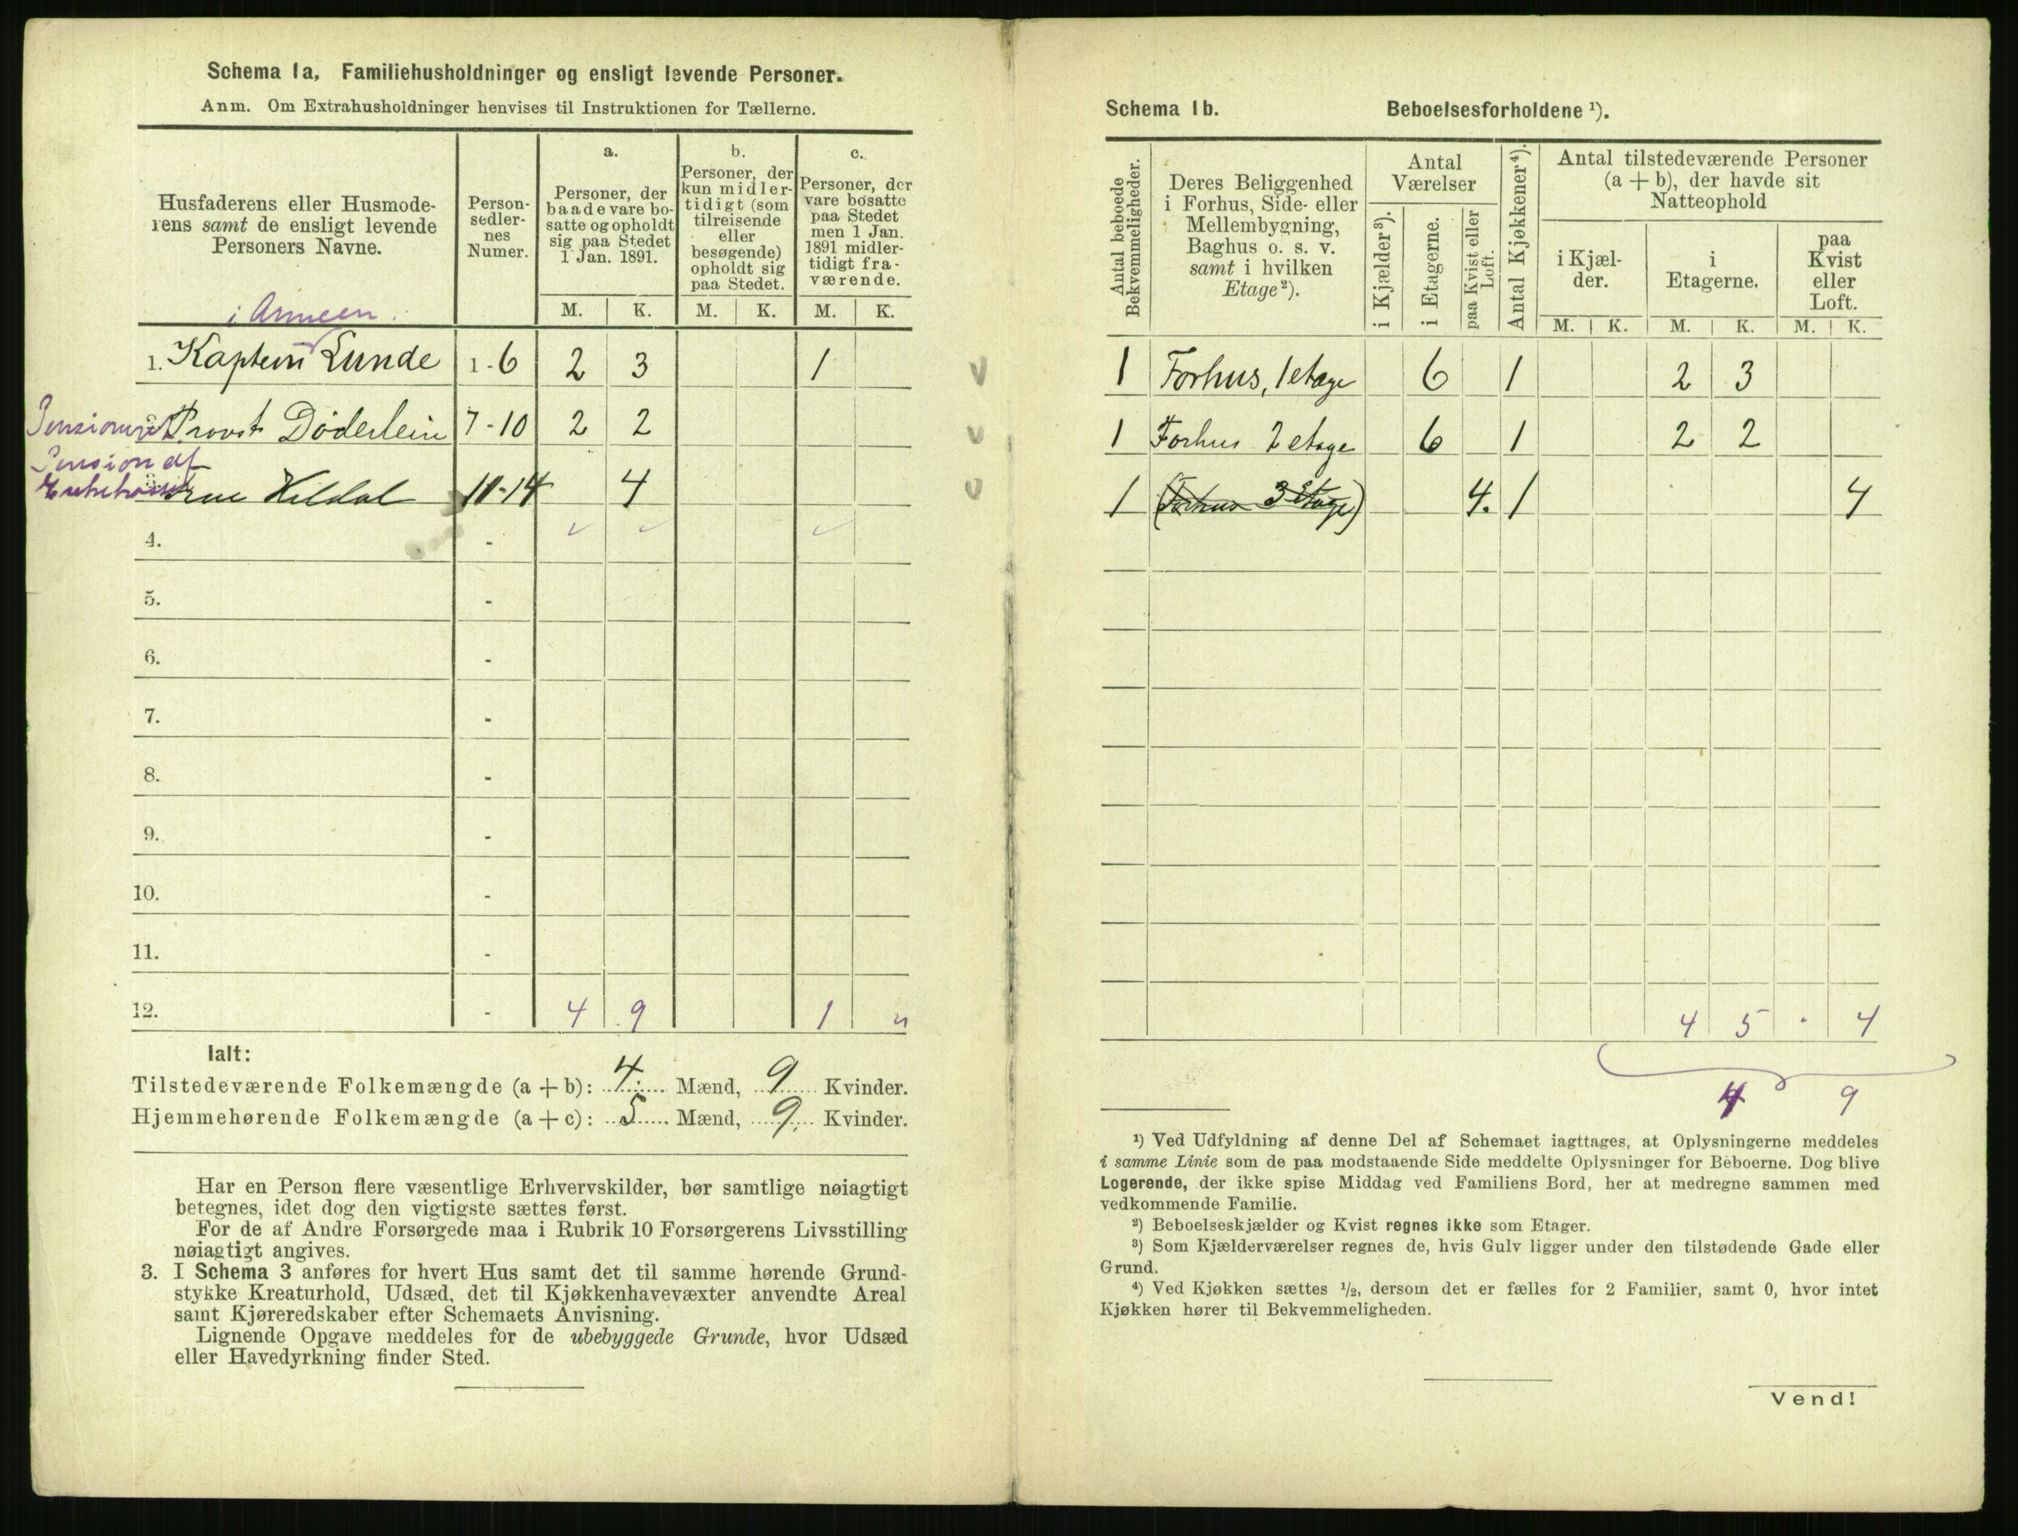 Schema 1a, Familiehusholdninger og ensligt levende Personer.
Anm. Om Extrahusholdninger henvises til Instruktionen for Tællerne.
Husfaderens eller Husmode-
rens samt de ensligt levende
Personers Navne.
Person-
sedler-
nes
Numer.
a.
Personer, der
baade vare bo-
satte og opholdt
sig paa Stedet
1 Jan. 1891.
b.
Personer, der
kun midler-
tidigt (som
tilreisende
eller
besøgende)
opholdt sig
paa Stedet.
c.
Personer, der
vare bosatte
paa Stedet
men 1 Jan.
1891 midler-
tidigt fra-
værende.
M. K. M. K. M. K.
i Armeen.
1. Kaptein Lunde 1-6 2 3 1
Provst Döderlein 7-10 2 2
Pension af
Fru Hildal 11-14 4
4. -
5. -
6. -
7. -
8. -
9. -
10. -
11. -
12. - 4 9 1 "
Ialt:
Tilstedeværende Folkemængde (a + b): 4. Mænd, 9 Kvinder.
Hjemmehørende Folkemængde (a + c): 5 Mænd, 9. Kvinder.
Har en Person flere væsentlige Erhvervskilder, bør samtlige nøiagtigt
betegnes, idet dog den vigtigste sættes først.
For de af Andre Forsørgede maa i Rubrik 10 Forsørgerens Livsstilling
nøiagtigt angives.
3. I Schema 3 anføres for hvert Hus samt det til samme hørende Grund-
stykke Kreaturhold, Udsæd, det til Kjøkkenhavevæxter anvendte Areal
samt Kjøreredskaber efter Schemaets Anvisning.
Lignende Opgave meddeles for de ubebyggede Grunde, hvor Udsæd
eller Havedyrkning finder Sted.
Schema 1b. Beboelsesforholdene ¹).
Antal beboede
Bekvemmeligheder.
Deres Beliggenhed
i Forhus, Side- eller
Mellembygning,
Baghus o. s. v.
samt i hvilken
Etage ²).
Antal
Værelser
i Kjælder ³).
i Etagerne.
paa Kvist eller
Loft.
Antal Kjøkkener ⁴).
Antal tilstedeværende Personer
(a + b), der havde sit
Natteophold
i Kjæl-
der.
i
Etagerne.
paa
Kvist
eller
Loft.
M. K. M. K. M. K.
1 Forhus, 1 etage 6 1 2 3
1 Forhus 2 etage 6 1 2 2
1 (Forhus 3 Etage) 4. 1 4
4 5 . 4
4 9
¹) Ved Udfyldning af denne Del af Schemaet iagttages, at Oplysningerne meddeles
i samme Linie som de paa modstaaende Side meddelte Oplysninger for Beboerne. Dog blive
Logerende, der ikke spise Middag ved Familiens Bord, her at medregne sammen med
vedkommende Familie.
²) Beboelseskjælder og Kvist regnes ikke som Etager.
³) Som Kjælderværelser regnes de, hvis Gulv ligger under den tilstødende Gade eller
Grund.
⁴) Ved Kjøkken sættes ¹/₂, dersom det er fælles for 2 Familier, samt 0, hvor intet
Kjøkken hører til Bekvemmeligheden.
Vend!